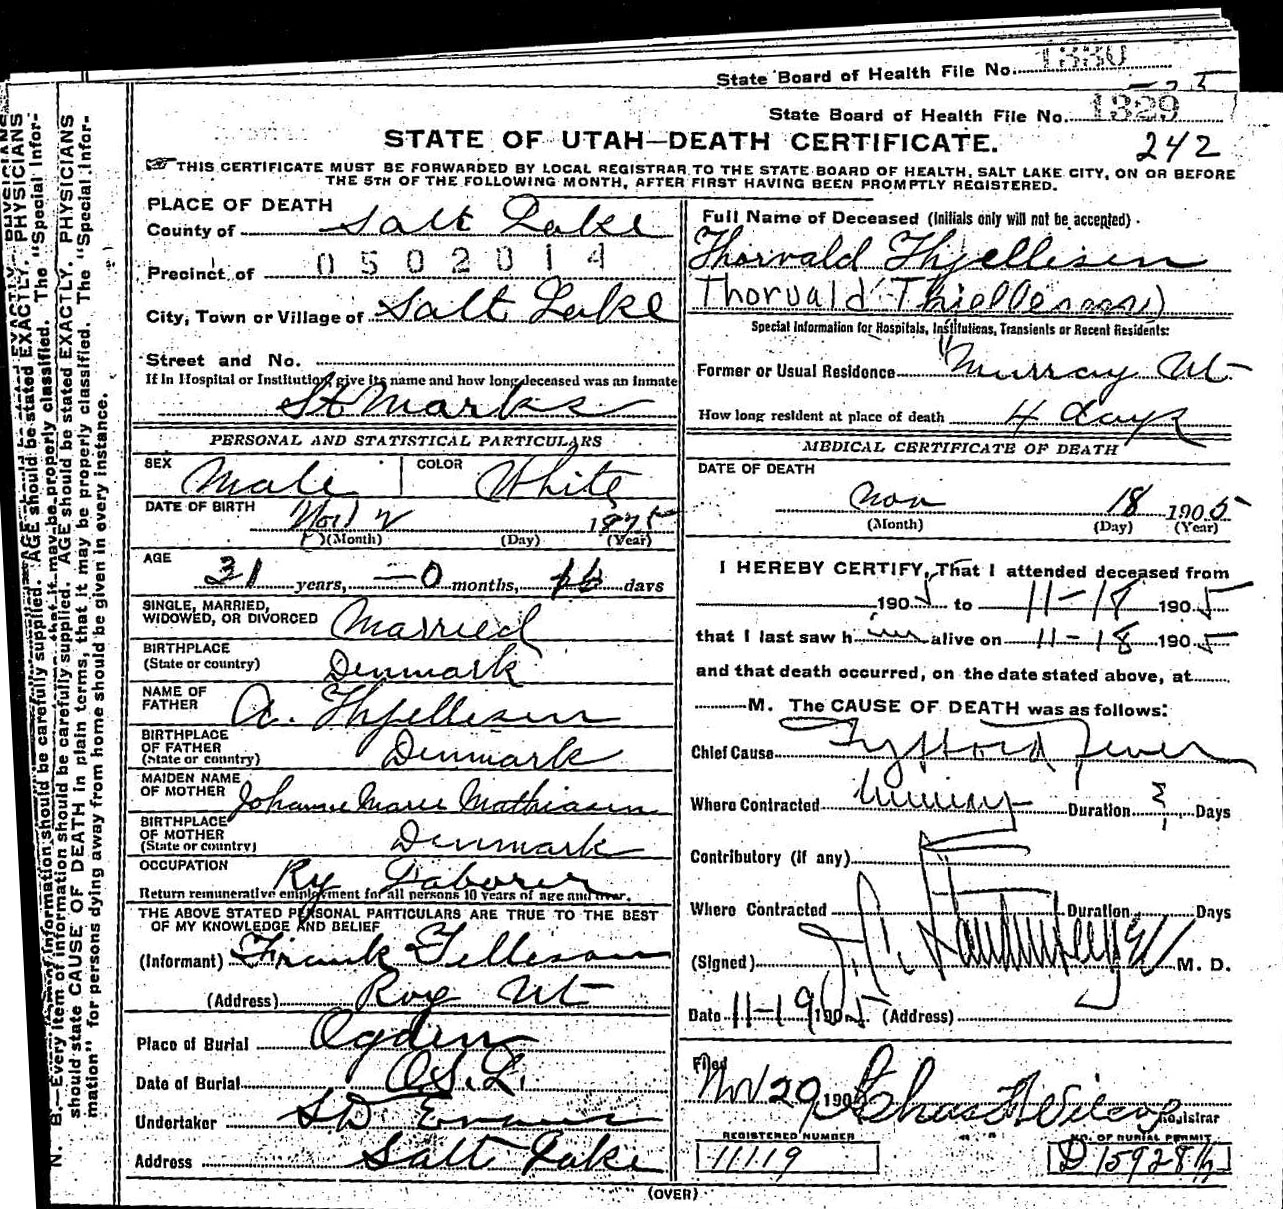 State Board of Health File No. 1330
State Board of Health File No. 1329
STATE OF UTAH—DEATH CERTIFICATE. 242
THIS CERTIFICATE MUST BE FORWARDED BY LOCAL REGISTRAR TO THE STATE BOARD OF HEALTH, SALT LAKE CITY, ON OR BEFORE
THE 5TH OF THE FOLLOWING MONTH, AFTER FIRST HAVING BEEN PROMPTLY REGISTERED.
N. B.—Every item of information should be carefully supplied. AGE should be stated EXACTLY. PHYSICIANS
should state CAUSE OF DEATH in plain terms, that it may be properly classified. The "Special Infor-
mation" for persons dying away from home should be given in every instance.
PLACE OF DEATH
County of Salt Lake
Precinct of 0502014
City, Town or Village of Salt Lake
Street and No.
If in Hospital or Institution, give its name and how long deceased was an inmate
St Marks
PERSONAL AND STATISTICAL PARTICULARS
SEX Male COLOR White
DATE OF BIRTH Nov 2 1875
(Month) (Day) (Year)
AGE 31 years, —0 months, 16 days
SINGLE, MARRIED,
WIDOWED, OR DIVORCED Married
BIRTHPLACE
(State or country) Denmark
NAME OF
FATHER A. Thjellesen
BIRTHPLACE
OF FATHER
(State or country) Denmark
MAIDEN NAME
OF MOTHER Johanne Marie Mathiasen
BIRTHPLACE
OF MOTHER
(State or country) Denmark
OCCUPATION Ry Laborer
Return remunerative employment for all persons 10 years of age and over.
THE ABOVE STATED PERSONAL PARTICULARS ARE TRUE TO THE BEST
OF MY KNOWLEDGE AND BELIEF
(Informant) Frank Telleson
(Address) Roy Ut
Place of Burial Ogden
Date of Burial O.S.L.
Undertaker S D Evans
Address Salt Lake
Full Name of Deceased (Initials only will not be accepted)
Thorvald Thjellisen
Thorvald Thiellesen)
Special Information for Hospitals, Institutions, Transients or Recent Residents:
Former or Usual Residence Murray Ut
How long resident at place of death 4 days
MEDICAL CERTIFICATE OF DEATH
DATE OF DEATH
Nov 18 1905
(Month) (Day) (Year)
I HEREBY CERTIFY, That I attended deceased from
1905 to 11-18 1905
that I last saw him alive on 11-18 1905
and that death occurred, on the date stated above, at
M. The CAUSE OF DEATH was as follows:
Chief Cause Typhoid Fever
Where Contracted Duration ? Days
Contributory (if any)
Where Contracted Duration Days
(Signed) M. D.
Date 11-19 1905 (Address)
Filed
Nov 29, 190 Chas F Wilcox Registrar
REGISTERED NUMBER NO. OF BURIAL PERMIT
11119 D 15928½
(OVER)